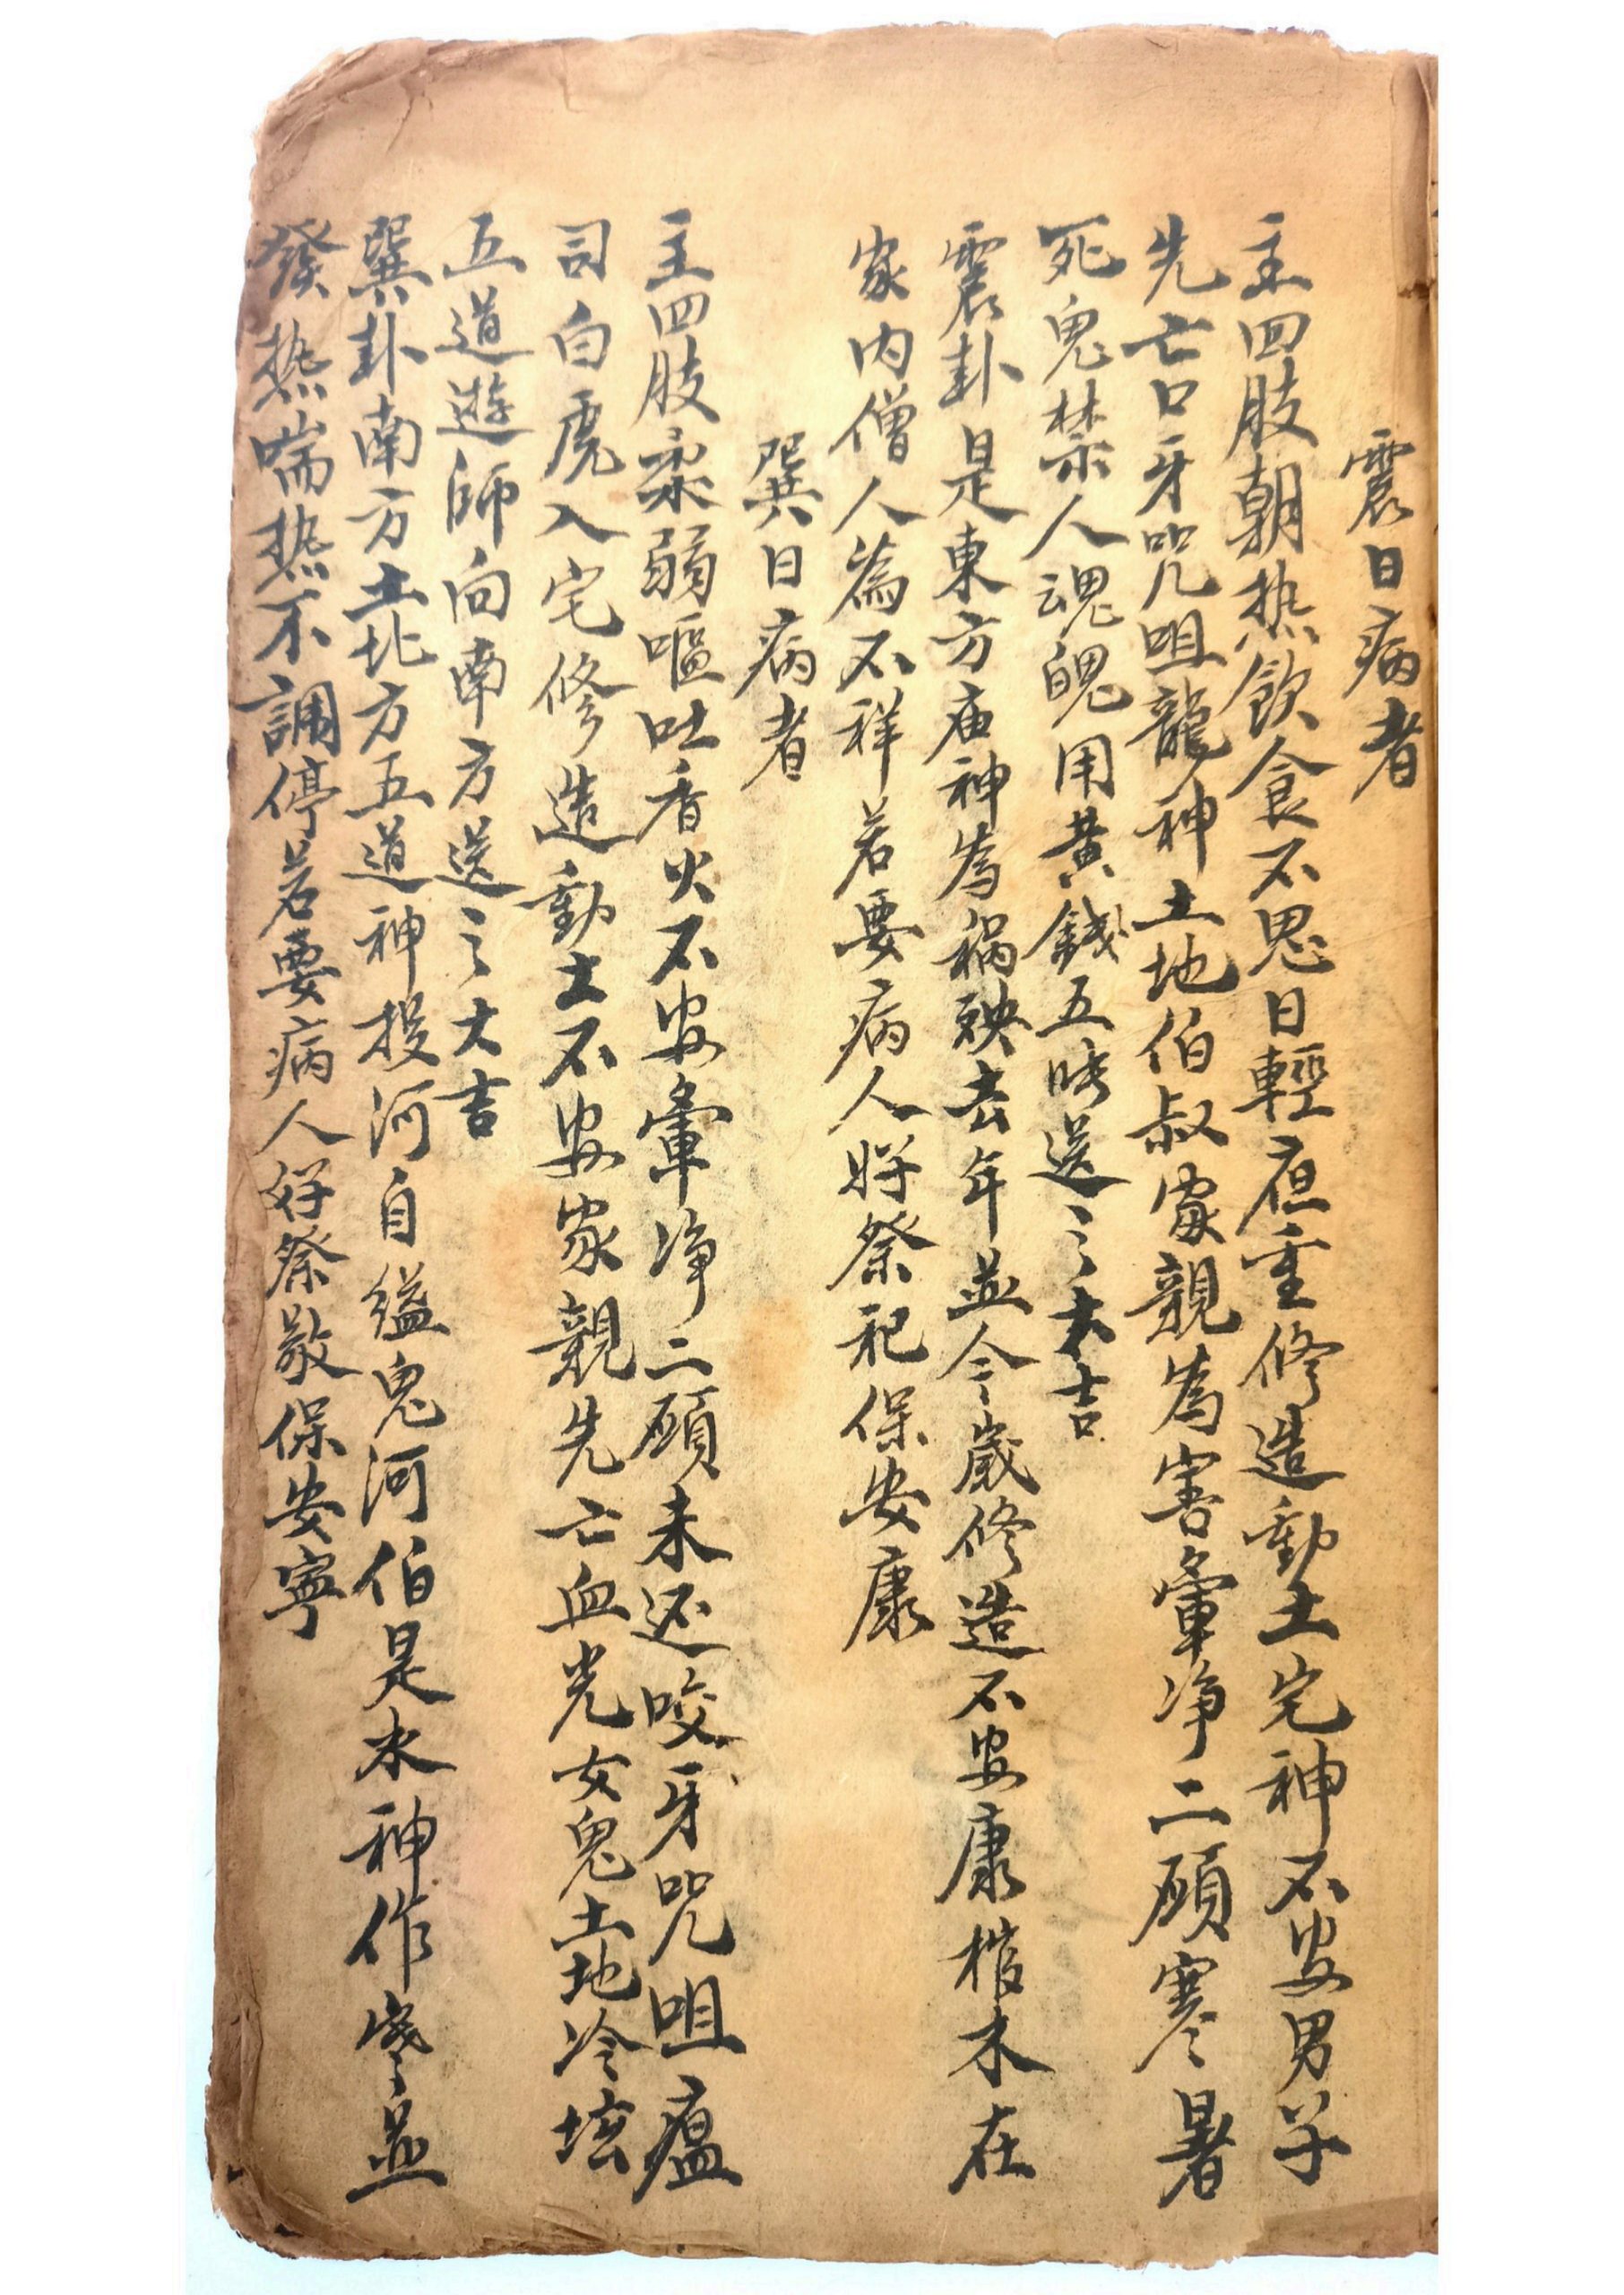 震日病者
主四肢朝热飲食不思日輕夜重修造動土宅神不安男子
先亡口牙咒咀龍神土地伯叔家親為害葷净二願寒暑
死鬼禁人魂魄用黄錢五时送之大吉
震卦是東方庙神為禍殃去年並今歲修造不安康棺木在
家内僧人為不祥若要病人好祭祀保安康
巽日病者
主四肢柔弱嘔吐香火不安葷净二願未还咬牙咒咀瘟
司白虎入宅修造動土不安家親先亡血光女鬼土地冷坛
五道遊師向南方送之大吉
巽卦南方土北方五道神投河自缢鬼河伯是水神作寒並
發热喘热不調停若要病人好祭敬保安寧